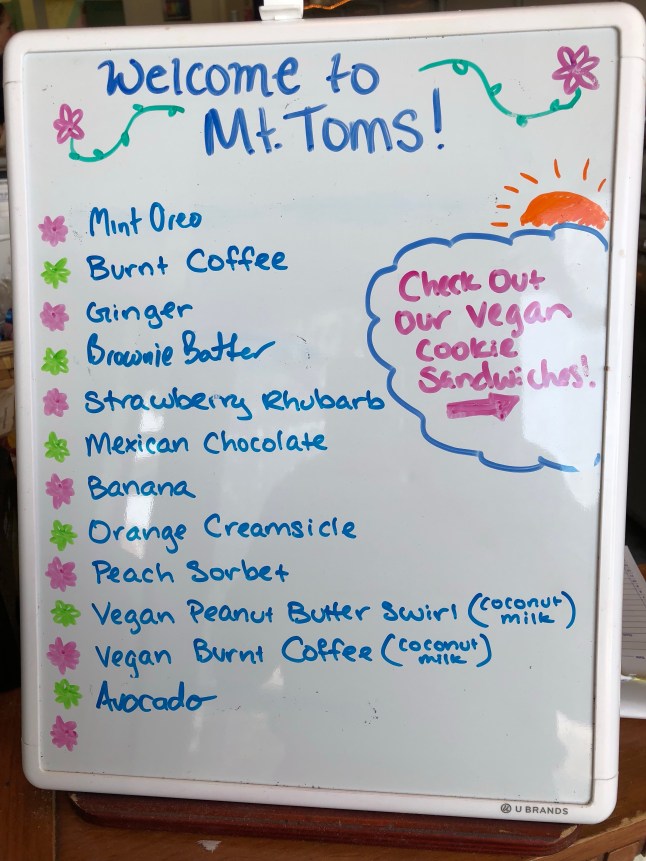 Welcome to
Mt. Toms!
Mint Oreo
Burnt Coffee
Ginger
Brownie Batter
Strawberry Rhubarb
Mexican Chocolate
Banana
Orange Creamsicle
Peach Sorbet
Vegan Peanut Butter Swirl (coconut milk)
Vegan Burnt Coffee (coconut milk)
Avocado
Check Out
Our Vegan
Cookie
Sandwiches!
U BRANDS